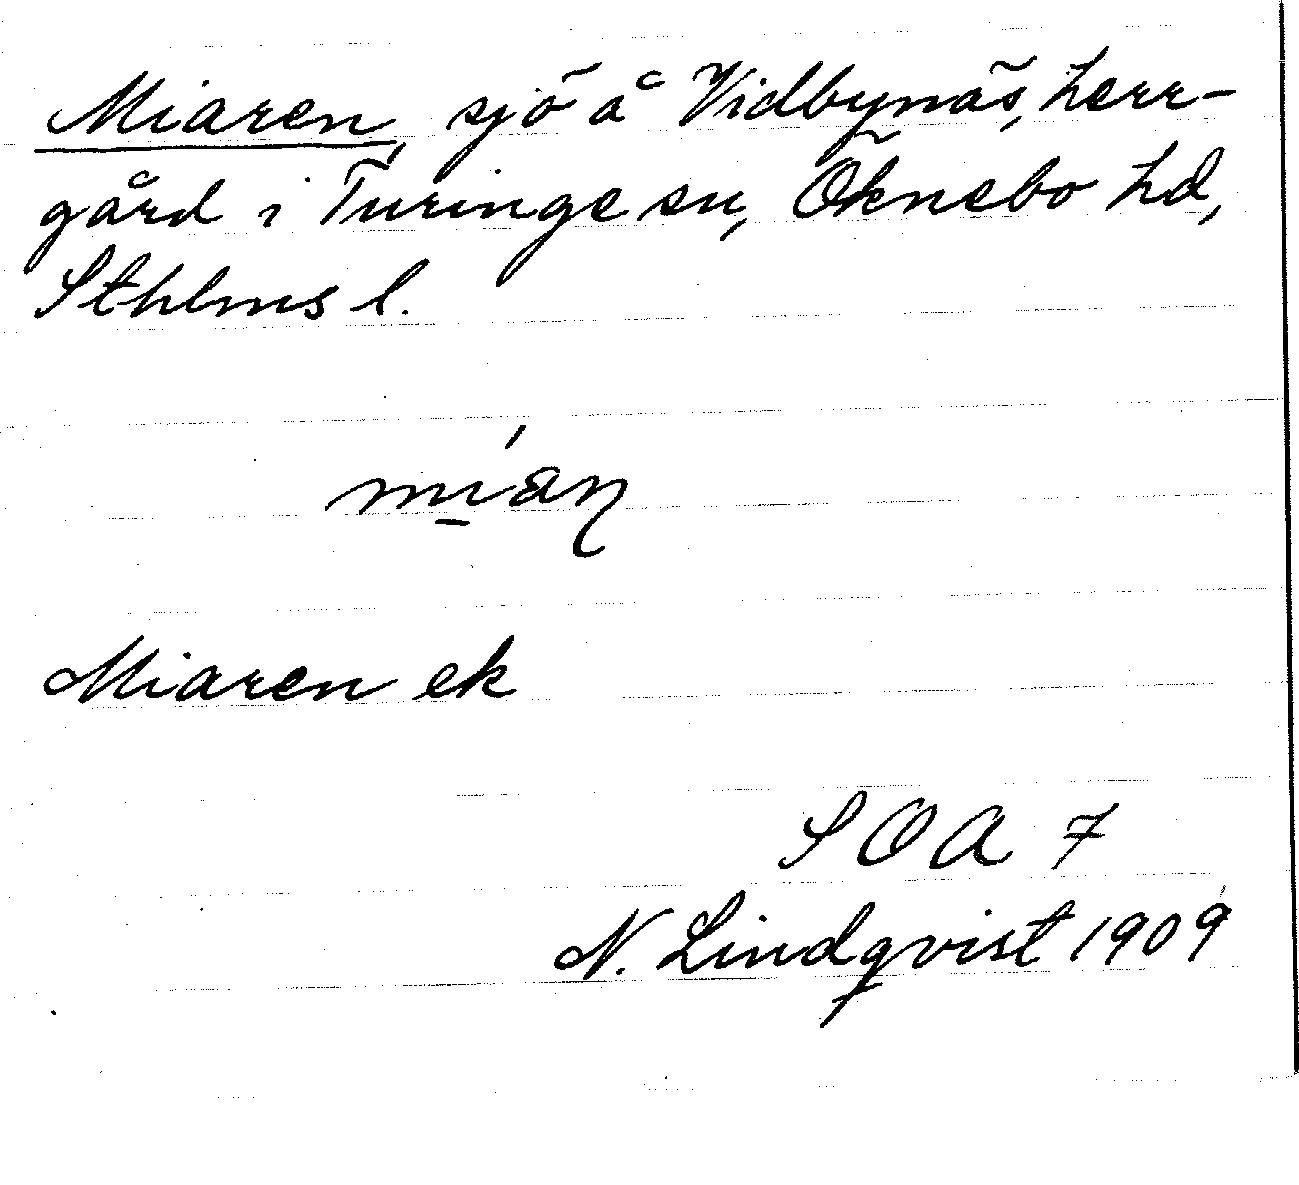 Miaren, sjö å Vidbynäs, herr-
gård i Turinge sn, Öknebo hd,
Sthlms l.
Miaren ek
SOA 7
N. Lindqvist 1909